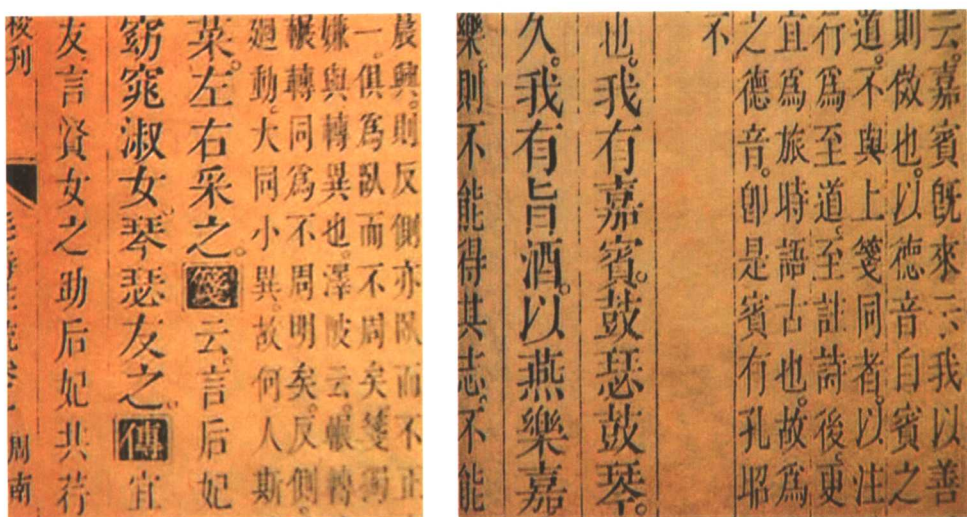 晨興。則反側亦臥而不正
一。俱爲臥而不周矣。箋獨
嫌與轉異也。澤陂云。輾轉
輾轉同爲不周明矣。反側。
迴動。大同小異。故何人斯
菜。左右采之。箋云。言后妃
窈窕淑女。琴瑟友之。傳宜
友言賢女之助后妃共荇
校刊
周南
云。嘉賓旣來。示我以善
則傚也。以德音自賓之
道。不與上箋同者。以注
行爲至道。至註詩後。更
宜爲旅時語古也。故爲
之德音。卽是賓有孔昭
不
也。我有嘉賓。鼓瑟鼓琴。
久。我有旨酒。以燕樂嘉
樂。則不能得其志。不能